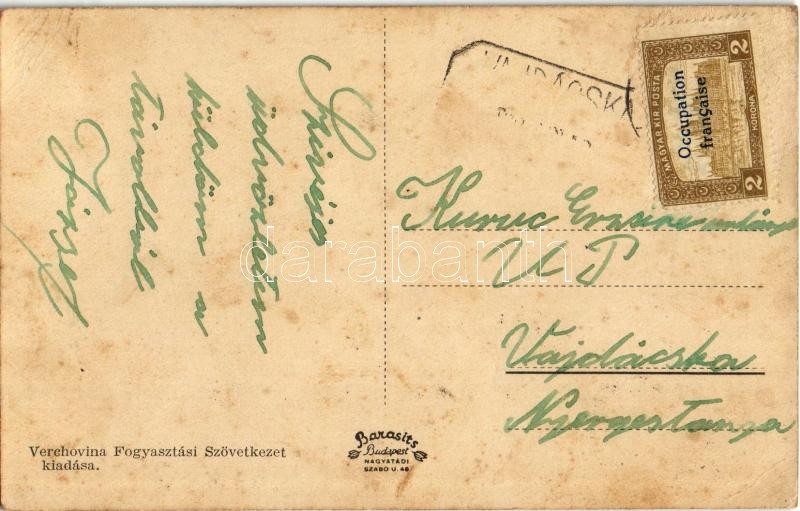 Szívélyes
üdvözletem
küldöm a
távolból
József
Verchovina Fogyasztási Szövetkezet
kiadása.
Barasits
Budapest
NAGYATÁDI
SZABÓ U. 48
VAJDÁCSK
MAGYAR KIR. POSTA
Occupation
française
2 KORONA 2
Kuruc
U P
Vajdácska
Nyergestanya
darabanth